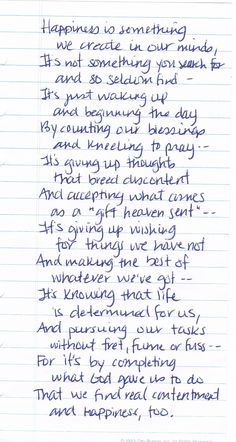 Happiness is something
we create in our minds,
It's not something you search for
and so seldom find -
It's just waking up
and beginning the day
By counting our blessings
and kneeling to pray --
It's giving up thoughts
that breed discontent
And accepting what comes
as a "gift heaven sent" --
It's giving up wishing
for things we have not
And making the best of
whatever we've got --
It's knowing that life
is determined for us,
And pursuing our tasks
without fret, fume or fuss --
For it's by completing
what God gave us to do
That we find real contentment
and happiness, too.